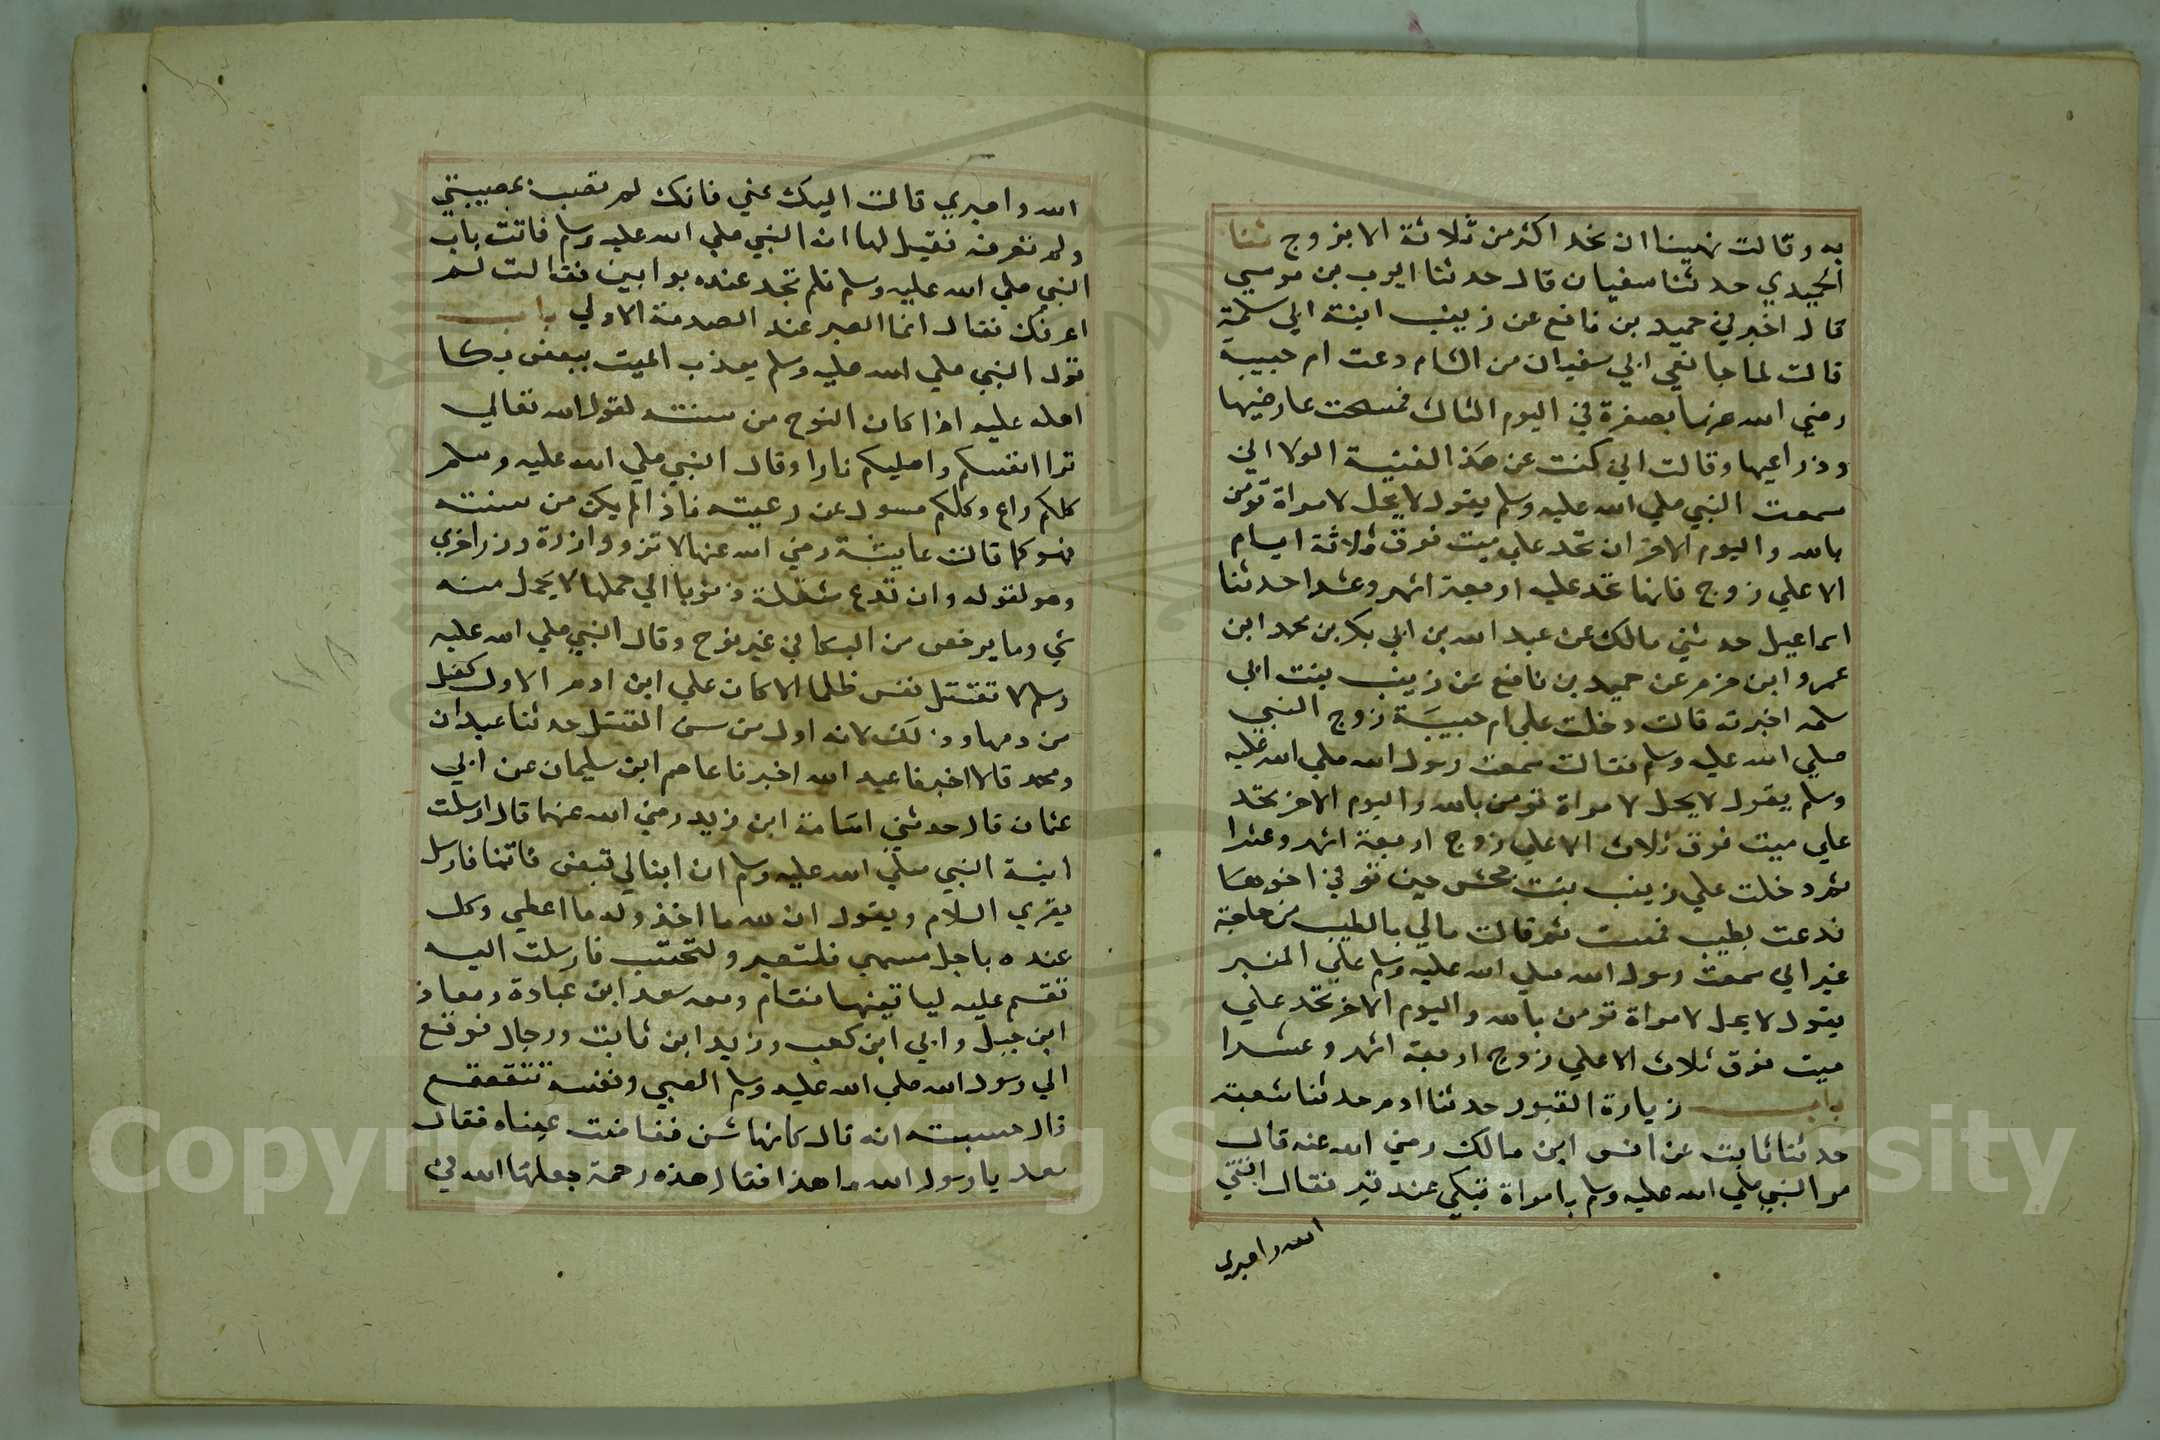 به وقالت نهينا ان نحد اكثر من ثلاثة الا بزوج ثنا
الحميدي حدثنا سفيان قال حدثنا ايوب بن موسي
قال اخبرني حميد بن نافع عن زينب ابنة ابي سلمة
قالت لما جا نعي ابي سفيان من الشام دعت ام حبيبة
رضي الله عنها بصفرة في اليوم الثالث فمسحت عارضيها
وذراعيها وقالت اني كنت عن هذا لغنية لولا اني
سمعت النبي صلي الله عليه وسلم يقول لا يحل لامراة تؤمن
بالله واليوم الاخر ان تحد علي ميت فوق ثلاثة ايام
الا علي زوج فانها تحد عليه اربعة اشهر وعشرا حدثنا
اسماعيل حدثني مالك عن عبد الله بن ابي بكر بن محمد ابن
عمرو ابن حزم عن حميد بن نافع عن زينب بنت ابي
سلمه اخبرته قالت دخلت علي ام حبيبة زوج النبي
صلي الله عليه وسلم فقالت سمعت رسول الله صلي الله عليه
وسلم يقول لا يحل لامراة تومن بالله واليوم الاخر تحد
علي ميت فوق ثلاث الا علي زوج اربعة اشهر وعشرا
ثم دخلت علي زينب بنت جحش حين توفي اخوها
فدعت بطيب فمست ثم قالت مالي بالطيب من حاجة
غير اني سمعت رسول الله صلي الله عليه وسلم علي المنبر
يقول لا يحل لامراة تومن بالله واليوم الاخر تحد علي
ميت فوق ثلاث الا علي زوج اربعة اشهر وعشرا
باب زيارة القبور حدثنا ادم حدثنا شعبة
حدثنا ثابت عن انس ابن مالك رضي الله عنه قال
مر النبي صلي الله عليه وسلم بامراة تبكي عند قبر فقال اتقي
الله واصبري
الله واصبري قالت اليك عني فانك لم تصب بمصيبتي
ولم تعرفه فقيل لها انه النبي صلي الله عليه وسلم فاتت باب
النبي صلي الله عليه وسلم فلم تجد عنده بوابين فقالت لم
اعرفك فقال انما الصبر عند الصدمة الاولي باب
قول النبي صلي الله عليه وسلم يعذب الميت ببعض بكا
اهله عليه اذا كان النوح من سنته لقول الله تعالي
قوا انفسكم واهليكم نارا وقال النبي صلي الله عليه وسلم
كلكم راع وكلكم مسول عن رعيته فاذا لم يكن من سنته
فهو كما قالت عايشة رضي الله عنها لا تزر وازرة وزر اخري
وهو لقوله وان تدع مثقلة ذنوبا الي حملها لا يحمل منه
شي وما يرخص من البكا في غير نوح وقال النبي صلي الله عليه
وسلم لا تقتل نفس ظلما الا كان علي ابن ادم الاول كفل
من دمها وذلك لانه اول من سن القتل حدثنا عبدان
ومحمد قالا اخبرنا عبد الله اخبرنا عاصم ابن سليمان عن ابي
عثمان قال حدثني اسامة ابن زيد رضي الله عنهما قال ارسلت
ابنة النبي صلي الله عليه وسلم ان ابنا لي قبض فاتنا فارسل
يقري السلام ويقول ان لله ما اخذ وله ما اعطي وكل
عنده باجل مسمي فلتصبر ولتحتسب فارسلت اليه
تقسم عليه لياتينها فقام ومعه سعد ابن عبادة ومعاذ
ابن جبل وابي ابن كعب وزيد ابن ثابت ورجال فوقع
الي رسول الله صلي الله عليه وسلم الصبي ونفسه تتقعقع
قال حسبت انه قال كانها شن ففاضت عيناه فقال
سعد يا رسول الله ما هذا فقال هذه رحمة جعلها الله في
Copyright © King Saud University